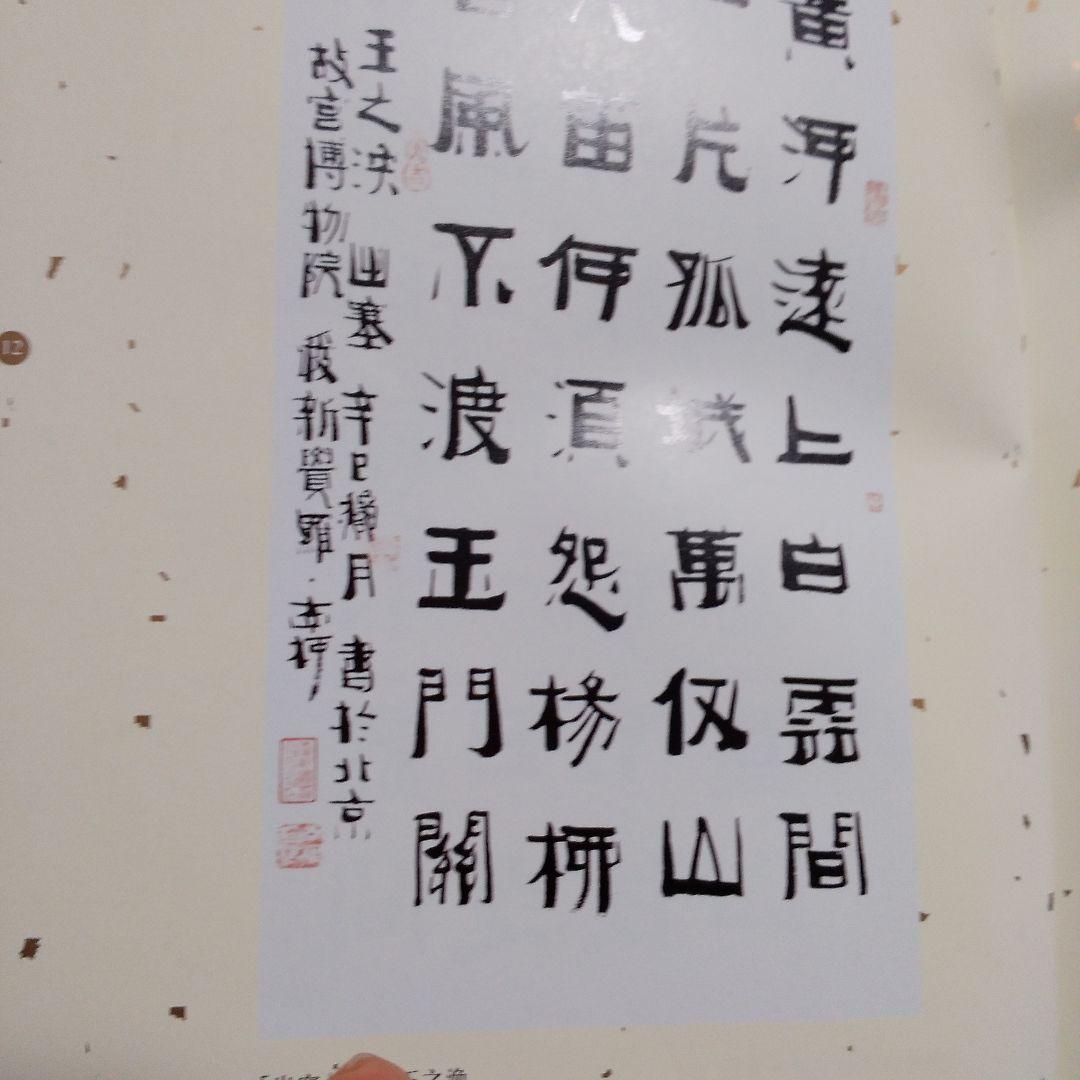 黃河遠上白雲間
一片孤城萬仞山
笛何須怨楊柳
風不渡玉門關
王之渙 出塞 辛巳月 書於北京
故宮博物院 愛新覺羅·
12